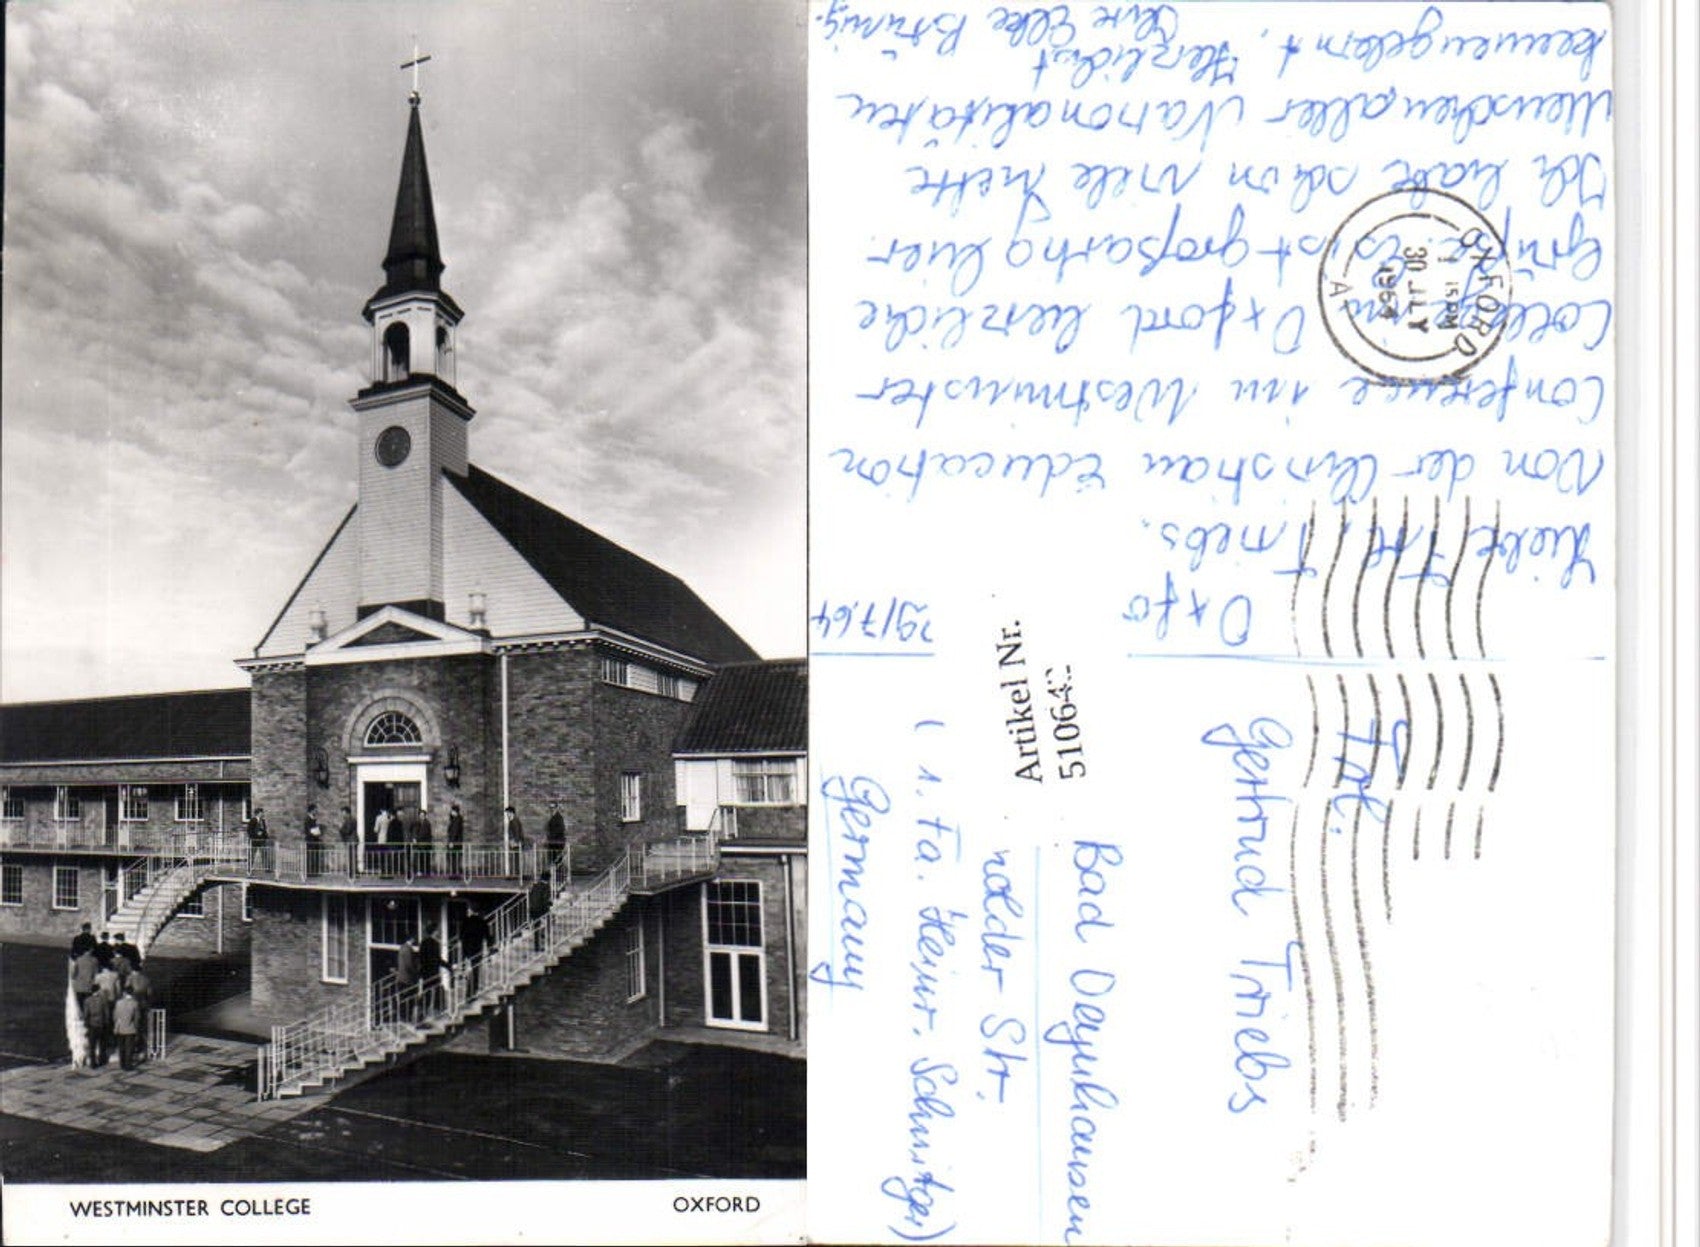 WESTMINSTER COLLEGE
OXFORD
Oxfo
29/7.64
Liebe Frl. Triebs.
Von der Christian Education
Conference im Westminster
College in Oxford herzliche
Grüße. Es ist großartig hier.
Ich habe schon viele nette
Menschen aller Nationalitäten
kennengelernt. Herzlichst
Ihre Elke Brünig.
OXFORD
15 PM
30 JLY
1964
A
Artikel Nr.
Frl.
Gertrud Triebs
Bad Oeynhausen
Str.
( 1. Fa. Heinr. Schnitger)
Germany